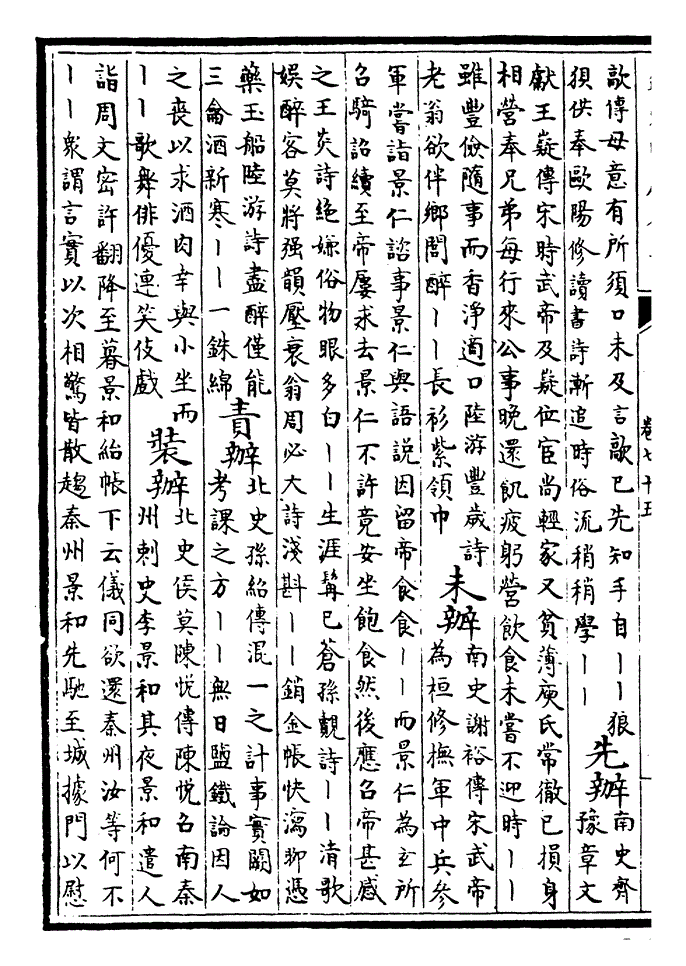 卷七十五
歊傳母意有所須口未及言歊已先知手自丨丨狼
須供奉歐陽修讀書詩漸追時俗流稍稍學丨丨
先辦
南史齊
豫章文
獻王嶷傳宋時武帝及嶷位宦尚輕家又貧薄庾氏常徹已損身
相營奉兄弟每行來公事晚還飢疲躬營飲食未嘗不迎時丨丨
雖豐儉隨事而香淨適口陸游豐歲詩
老翁欲伴鄉閭醉丨丨長衫紫領巾
未辦
南史謝裕傳宋武帝
為桓修撫軍中兵參
軍嘗詣景仁諮事景仁與語說因留帝食食丨丨而景仁為玄所
召騎詔續至帝屢求去景仁不許竟安坐飽食然後應召帝甚感
之王炎詩絶嫌俗物眼多白丨丨生涯鬂已蒼孫覿詩丨丨清歌
娱醉客莫將强韻壓衰翁周必大詩淺斟丨丨銷金帳快瀉聊憑
藥玉船陸游詩盡醉僅能
三龠酒新寒丨丨一銖綿
責辦
北史孫紹傳混一之計事實闗如
考課之方丨丨無日鹽鐵論因人
之喪以求酒肉幸與小坐而
丨丨歌舞俳優連笑伎戲
裝辦
北史侯莫陳悅傳陳悅召南秦
州刺史李景和其夜景和遣人
詣周文密許翻降至暮景和紿帳下云儀同欲還秦州汝等何不
丨丨衆謂言實以次相驚皆散趨秦州景和先馳至城據門以慰